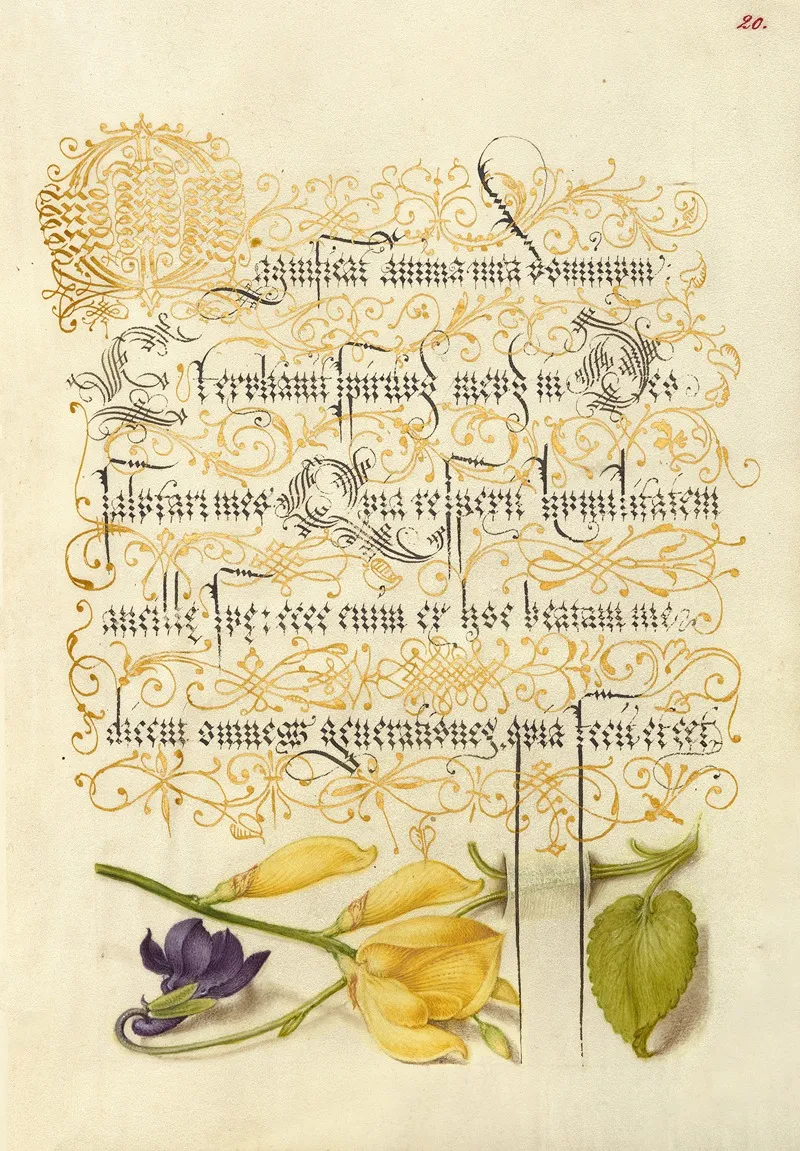 20.
Magnificat anima mea dominum:
Et exultauit spiritus meus in Deo
salutari meo Quia respexit humilitatem
ancille sue: ecce enim ex hoc beatam me
dicent omnes generationes, quia fecit et cet.